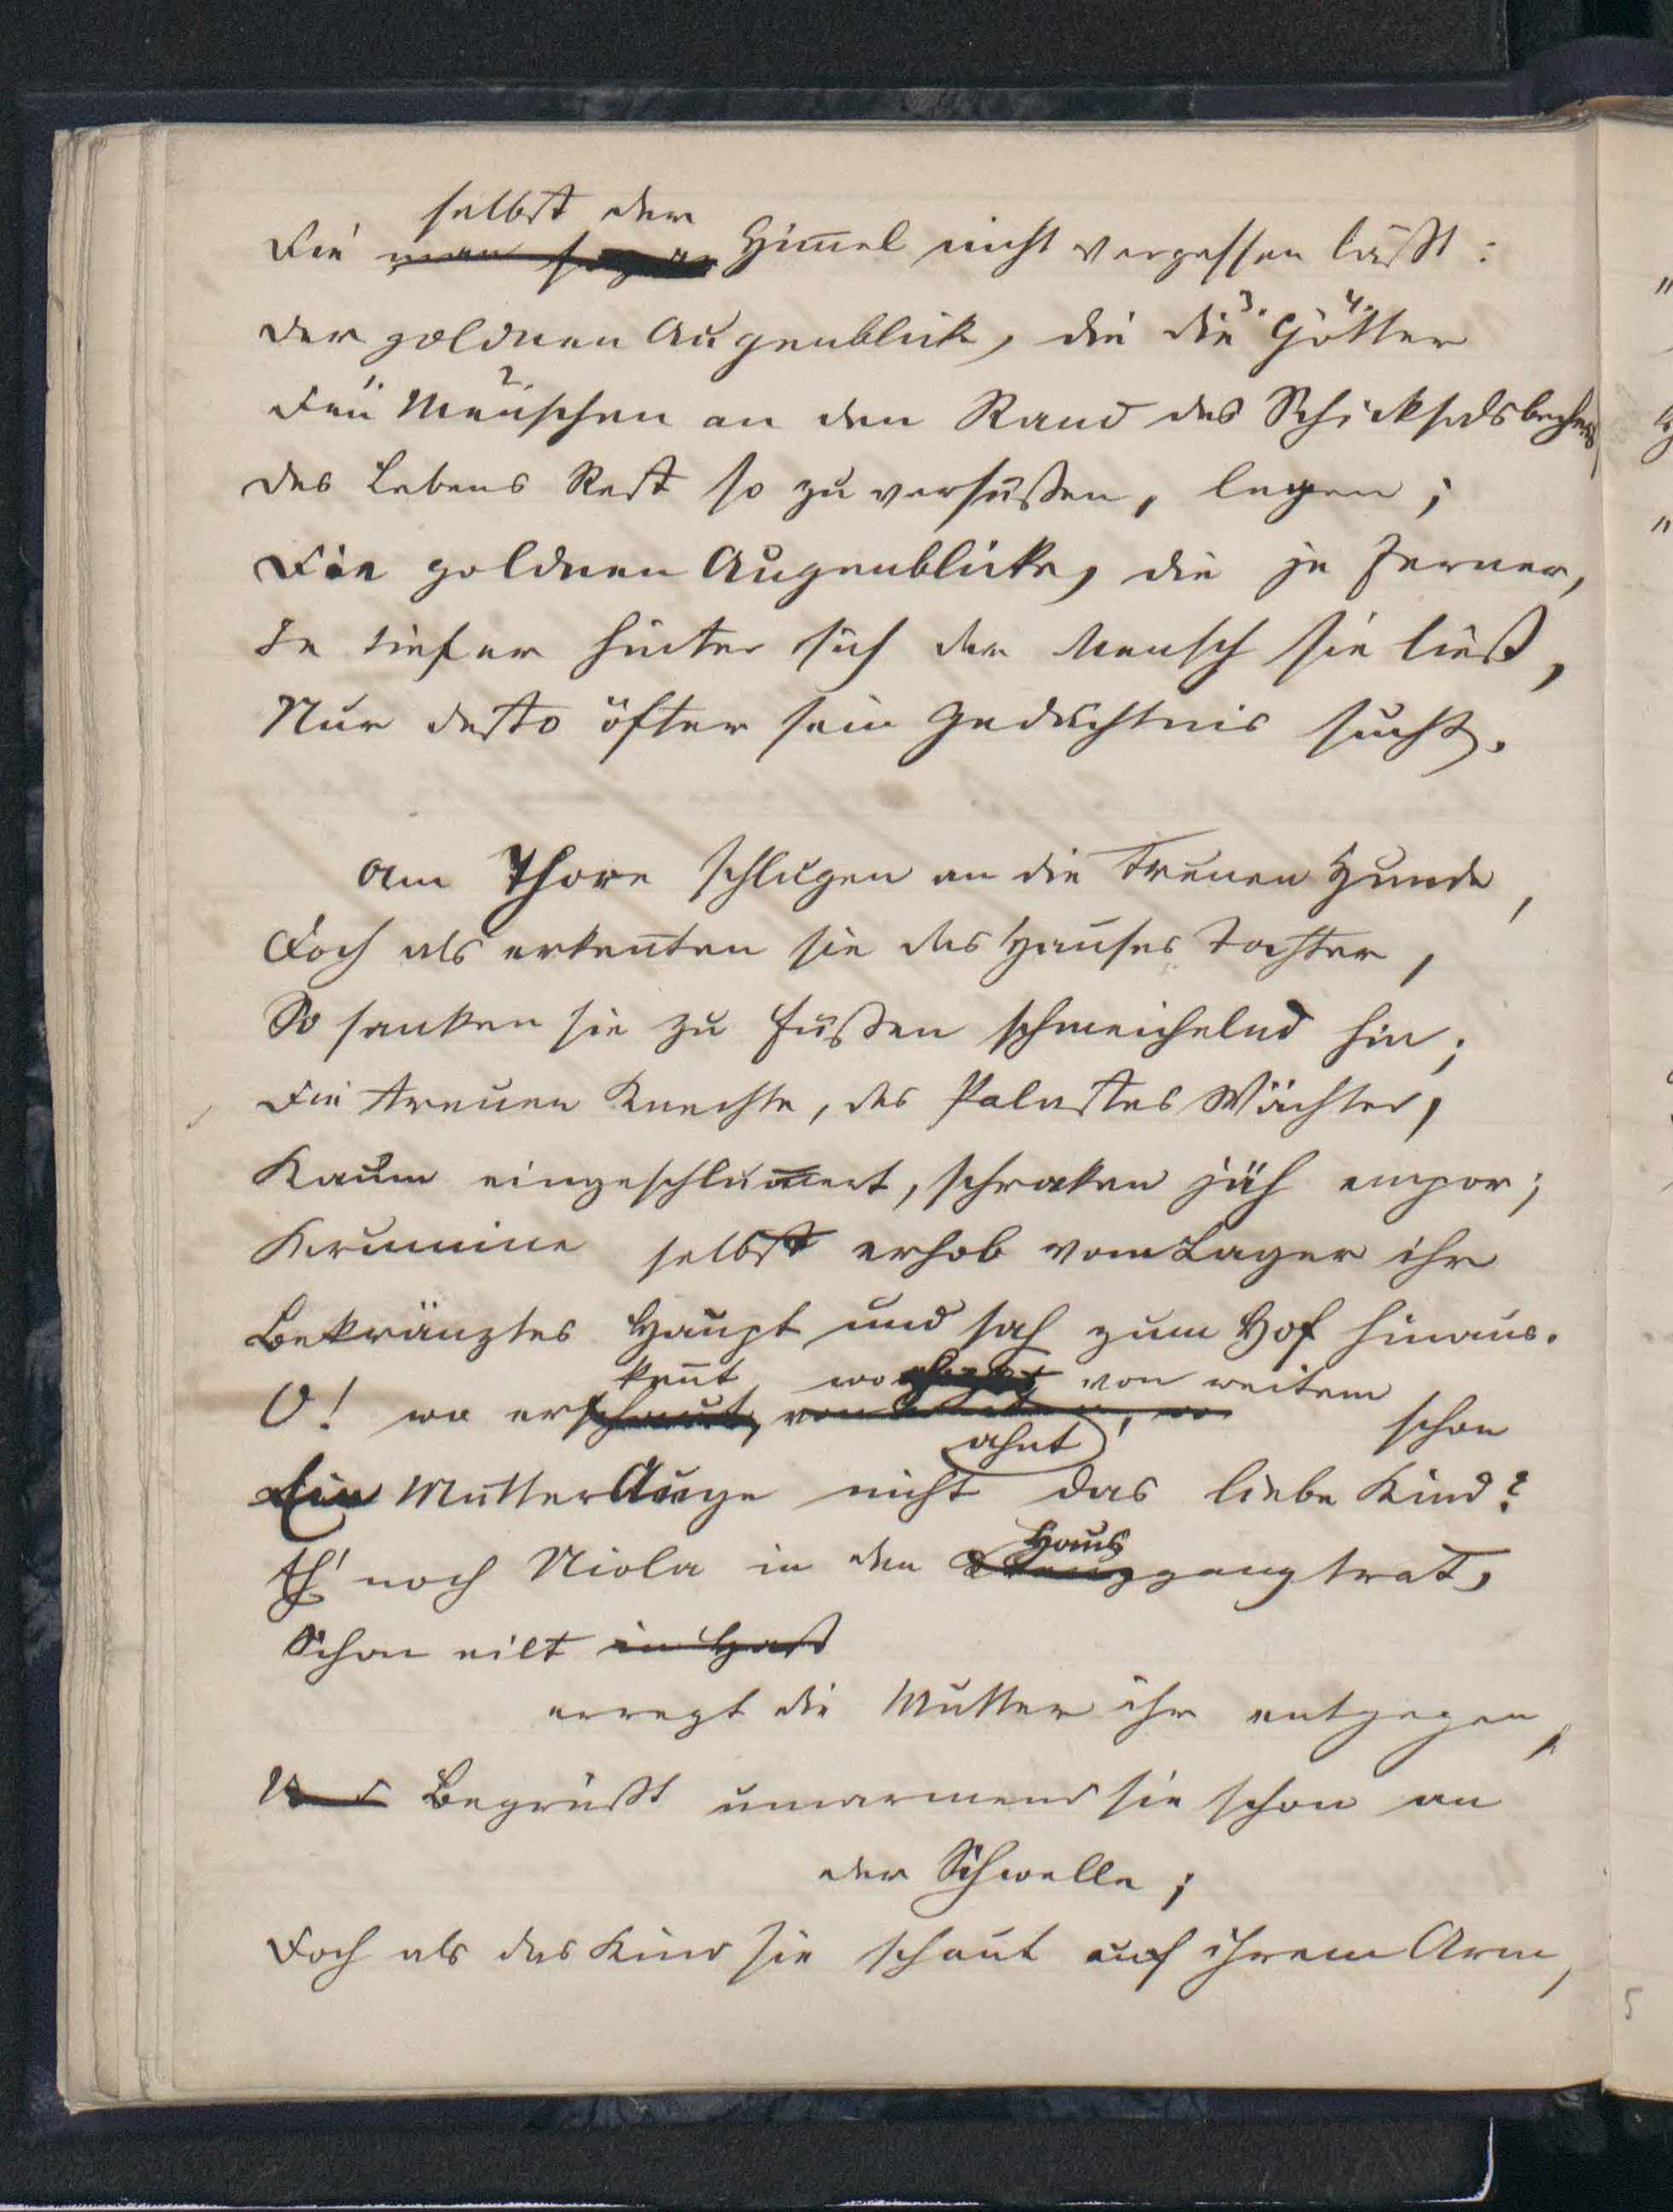 selbst der
Die man sogar Him̄el nicht vergessen läßt:
Der goldnen Augenblick, die die 3. Götter 4.
Den 1. Menschen 2. an den Rand des Schicksalsbechers,
Des Lebens Rest so zu versüßen, legen;
Die goldnen Augenblicke, die je ferner,
Je tiefer hinter sich der Mensch sie ließ,
Nur desto öfter sein Gedächtnis sucht.
Am Thore schlugen an die treuen Hunde,
Doch als erkan̄ten sie des Hauses Tochter,
So sanken sie zu Füßen schmeichelnd hin;
Die treuen Knechte, des Palastes Wächter,
Kaum eingeschlum̄ert, schraken jäh empor;
Krumine selbst erhob vom Lager ihr
Bekränztes Haupt und sah zum Hof hinaus.
ken̄t, wo von weitem
O! wo erschaut, von Weitem, wo schon
ahnt
Ein MutterAuge nicht das liebe Kind?
Haus
Eh' noch Niola in den Kreuzgang trat,
Schon eilt in Hast
erregt die Mutter ihr entgegen,
Und Begrüßt umarmend sie schon an
der Schwelle;
Doch als das Kind sie schaut auf ihrem Arm,
5